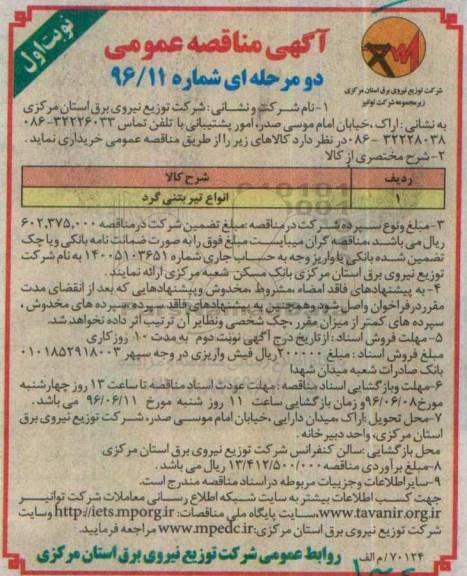 نوبت اول
آگهی مناقصه عمومی
دو مرحله ای شماره ۹۶/۱۱
شرکت توزیع نیروی برق استان مرکزی
زیرمجموعه شرکت توانیر
۱-نام شرکت و نشانی : شرکت توزیع نیروی برق استان مرکزی
به نشانی : اراک ،خیابان امام موسی صدر، امور پشتیبانی با تلفن تماس ۳۲۲۲۶۰۳۳-۰۸۶
۳۲۲۲۸۰۳۸ -۰۸۶ در نظر دارد کالاهای زیر را از طریق مناقصه عمومی خریداری نماید .
۲- شرح مختصری از کالا
ردیف شرح کالا
۱ انواع تیر بتنی گرد
۳-مبلغ و نوع سپرده شرکت در مناقصه :مبلغ تضمین شرکت در مناقصه ۶۰۲,۳۷۵,۰۰۰
ریال می باشد ،مناقصه گران میبایست مبلغ فوق را به صورت ضمانت نامه بانکی و یا چک
تضمین شده بانکی یا واریز وجه به حساب جاری شماره ۱۴۰۰۵۱۰۳۶۵۱ به نام شرکت
توزیع نیروی برق استان مرکزی بانک مسکن شعبه مرکزی ارائه نمایند .
۴- به پیشنهادهای فاقد امضاء ،مشروط ،مخدوش وپیشنهادهایی که بعد از انقضای مدت
مقرر در فراخوان واصل شود و همچنین به پیشنهادهای فاقد سپرده ،سپرده های مخدوش ،
سپرده های کمتر از میزان مقرر ،چک شخصی و نظایر آن ترتیب اثر داده نخواهد شد.
۵-مهلت فروش اسناد : از تاریخ درج آگهی نوبت دوم به مدت ۱۰ روز کاری
مبلغ فروش اسناد : مبلغ ۲۰۰۰۰۰ ریال فیش واریزی در وجه سپهر ۰۱۰۱۸۵۲۹۱۸۰۰۳
بانک صادرات شعبه میدان شهدا
۶-مهلت وبازگشایی اسناد مناقصه : مهلت عودت اسناد مناقصه تا ساعت ۱۳ روز چهارشنبه
مورخ ۹۶/۰۶/۰۸ و زمان بازگشایی ساعت ۱۱ روز شنبه مورخ ۹۶/۰۶/۱۱ می باشد .
۷-محل تحویل :اراک ،میدان دارایی ،خیابان امام موسی صدر، شرکت توزیع نیروی برق
استان مرکزی، واحد دبیرخانه .
محل بازگشایی :سالن کنفرانس شرکت توزیع نیروی برق استان مرکزی
۸-مبلغ برآوردی مناقصه ۱۳/۴۱۲/۵۰۰/۰۰۰ ریال می باشد .
۹-سایر اطلاعات و جزییات مربوطه در اسناد مناقصه مندرج است.
جهت کسب اطلاعات بیشتر به سایت شبکه اطلاع رسانی معاملات شرکت توانیر
www.tavanir.org.ir،سایت پایگاه ملی مناقصات: http://iets.mporg.ir وسایت
شرکت توزیع نیروی برق استان مرکزی: www.mpedc.ir مراجعه فرمایید.
۷۰۱۲۴ / م الف روابط عمومی شرکت توزیع نیروی برق استان مرکزی